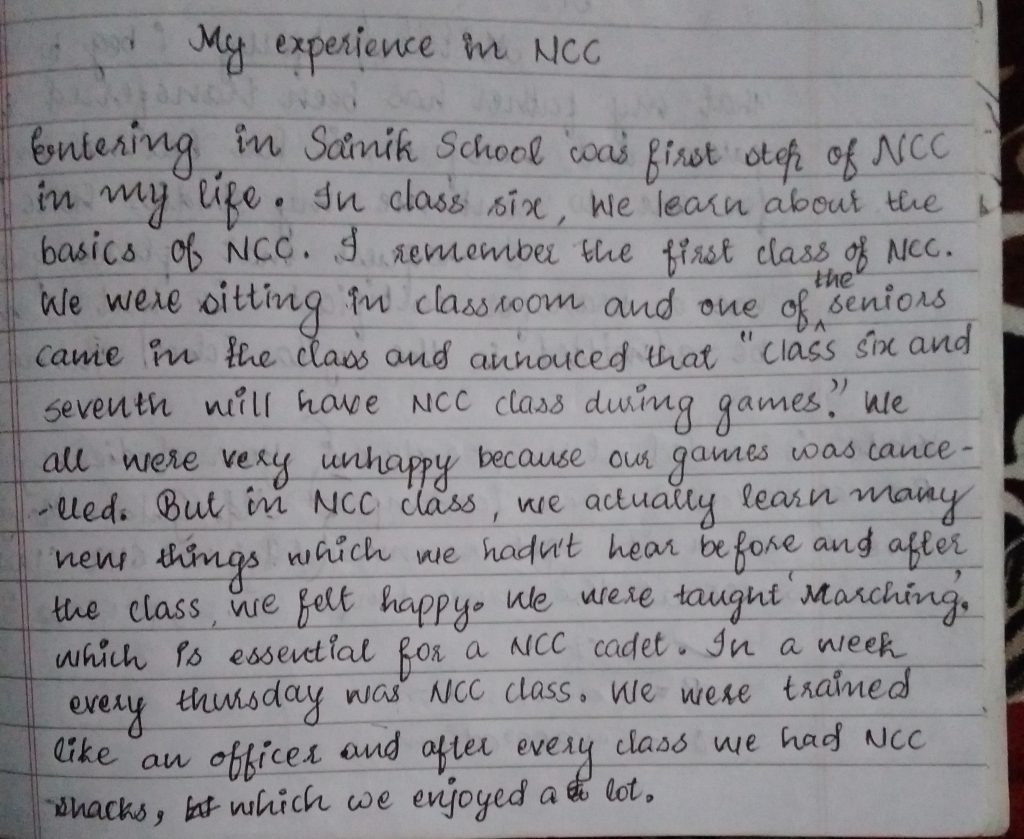 My experience in NCC
Entering in Sainik School was first step of NCC
in my life. In class six, we learn about the
basics of NCC. I remember the first class of NCC.
We were sitting in classroom and one of the seniors
came in the class and annouced that "class six and
seventh will have NCC class during games." We
all were very unhappy because our games was cance-
-lled. But in NCC class, we actually learn many
new things which we hadn't hear before and after
the class, we felt happy. We were taught 'Marching',
which is essential for a NCC cadet. In a week
every thursday was NCC class. We were trained
like an officer and after every class we had NCC
snacks, which we enjoyed a lot.